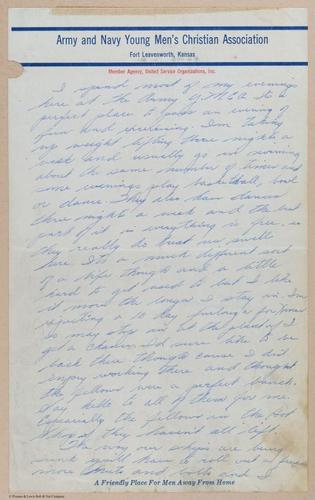 Army and Navy Young Men's Christian Association
Fort Leavenworth, Kansas
Member Agency, United Service Organizations, Inc.
I spend most of my evenings
here at the Army Y.M.C.A. its a
perfect place to pass an evening of
fun and relaxing. I'm taking
up weight lifting three nights a
week and usually go in swimming
about the same number of times and
some evenings play basketball, bowl
or dance. They also have dances
three nights a week and the best
part of it is everything is free, so
they really do treat us swell
here. Its a much different sort
of a life though and a little
hard to get used to but I like
it more the longer I stay in. I'm
expecting a 10 day furlough for Xmas
so may stop in at the plant if I
go to Chester. I'd sure like to be
back there though cause I did
enjoy working there and thought
the fellows were a perfect bunch.
Say hello to all of them for me.
Especially the fellows in the
if they haven't all left.
The way our ships are being
sunk you'll have to roll out a few
more nuts and bolts and I
A Friendly Place For Men Away From Home